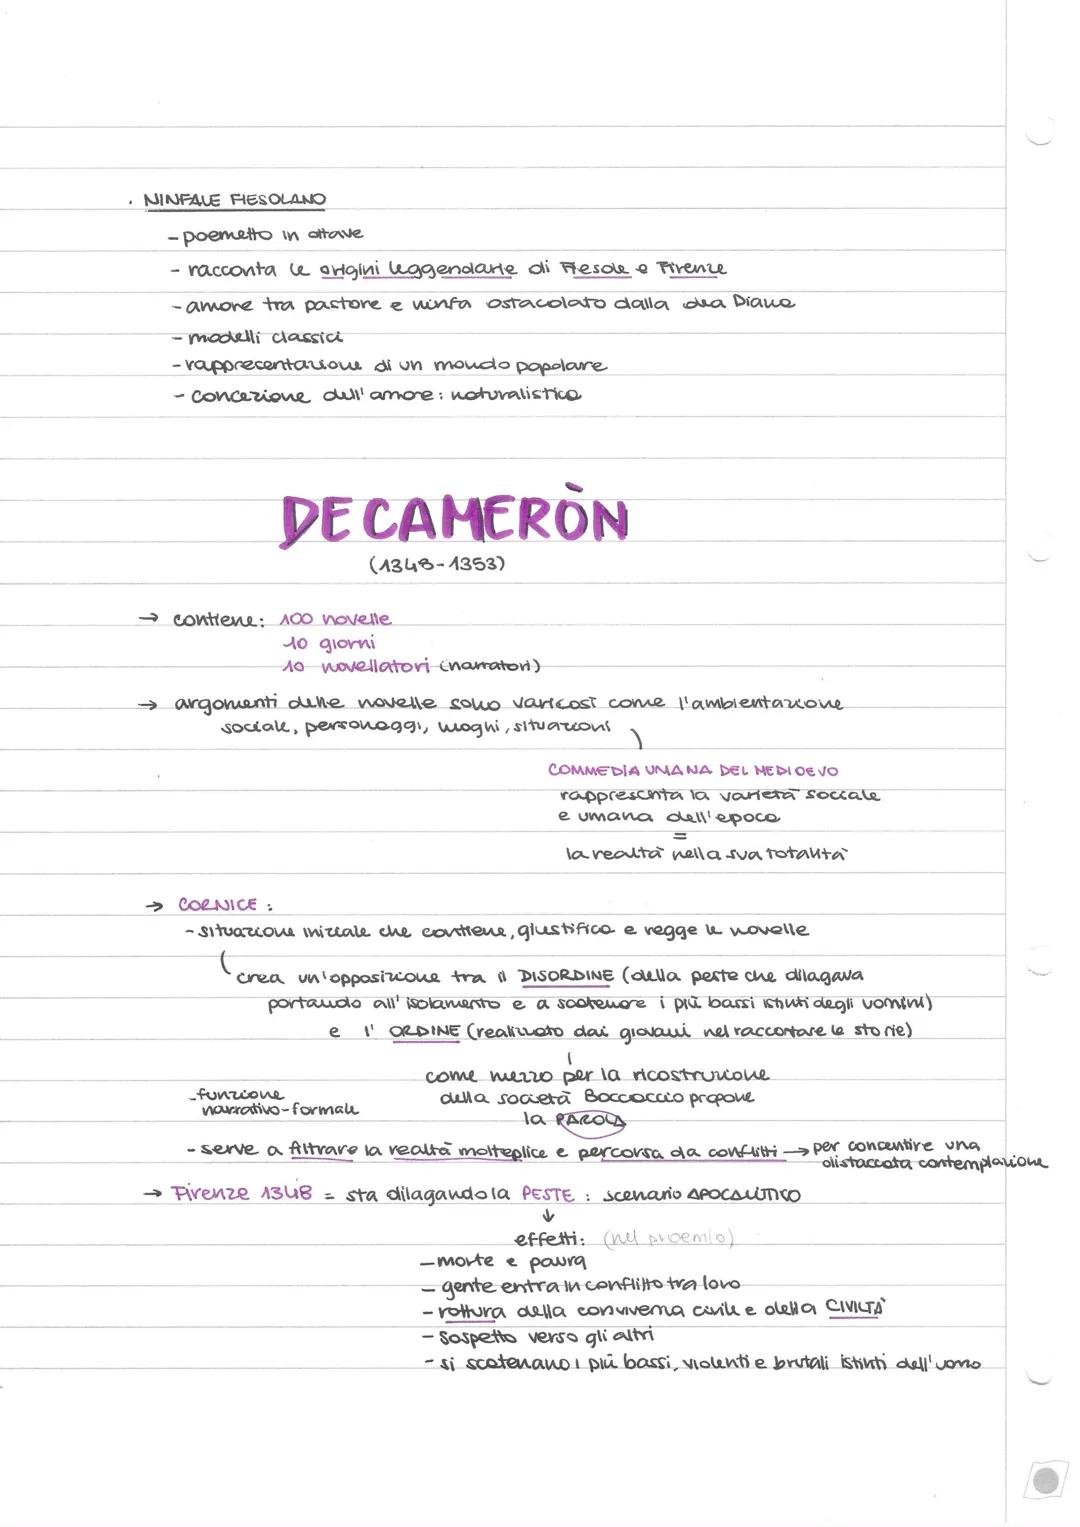 . NINFALE FIESOLANO
- poemetto in ottave
- racconta le origini leggendarie di Fiesole e Firenze
- amore tra pastore e ninfa ostacolato dalla dea Diana
- modelli classici
- rapprecentazione di un mondo popolare
- concezione dell'amore: naturalistica
DECAMERÒN
(1348-1353)
→ contiene: 100 novelle
10 giorni
10 novellatori (narratori)
→ argomenti delle novelle sono vari così come l'ambientazione
sociale, personaggi, luoghi, situazioni
COMMEDIA UMANA DEL MEDIOEVO
rappresenta la varietà sociale
e umana dell'epoca
=
la realtà nella sua totalità
→ CORNICE:
- situazione iniziale che contiene, giustifica e regge le novelle
crea un'opposizione tra il DISORDINE (della peste che dilagava
portando all'isolamento e a scatenare i più bassi istinti degli uomini)
e l'ORDINE (realizzato dai giovani nel raccontare le storie)
come mezzo per la ricostruzione
della società Boccaccio propone
la PAROLA
- funzione
narrativo-formale
- serve a filtrare la realtà molteplice e percorsa da conflitti → per concentire una
distaccata contemplazione
→ Firenze 1348 = sta dilagando la PESTE : scenario APOCALITTICO
↓
effetti: (nel proemio)
- morte e paura
- gente entra in conflitto tra loro
- rottura della convivenza civile e della CIVILTÀ
- sospetto verso gli altri
- si scatenano i più bassi, violenti e brutali istinti dell'uomo